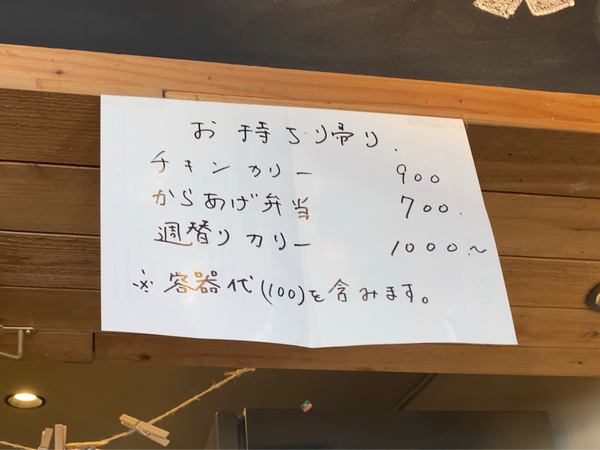 お持ち帰り.
チキンカリー 900
からあげ弁当 700.
週替りカリー 1000.~
※容器代(100)を含みます。